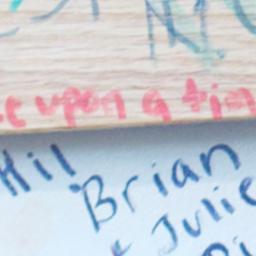 upon a tim
Hi!
Brian
+ Julie